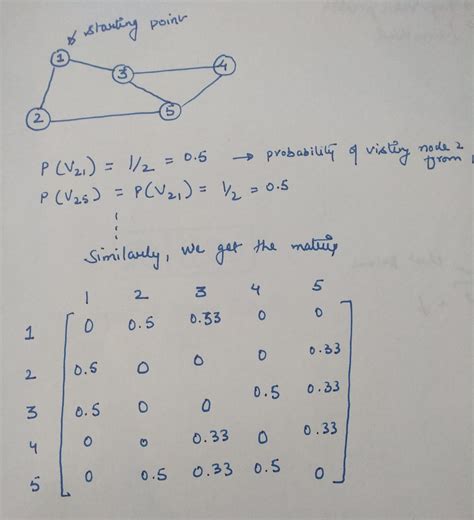 starting point
1
3
4
2
5
P(V21) = 1/2 = 0.5 → probability of visting node 2
from 1
P(V25) = P(V21) = 1/2 = 0.5
Similarly, we get the matrix
1 2 3 4 5
1 0 0.5 0.33 0 0
2 0.5 0 0 0 0.33
3 0.5 0 0 0.5 0.33
4 0 0 0.33 0 0.33
5 0 0.5 0.33 0.5 0